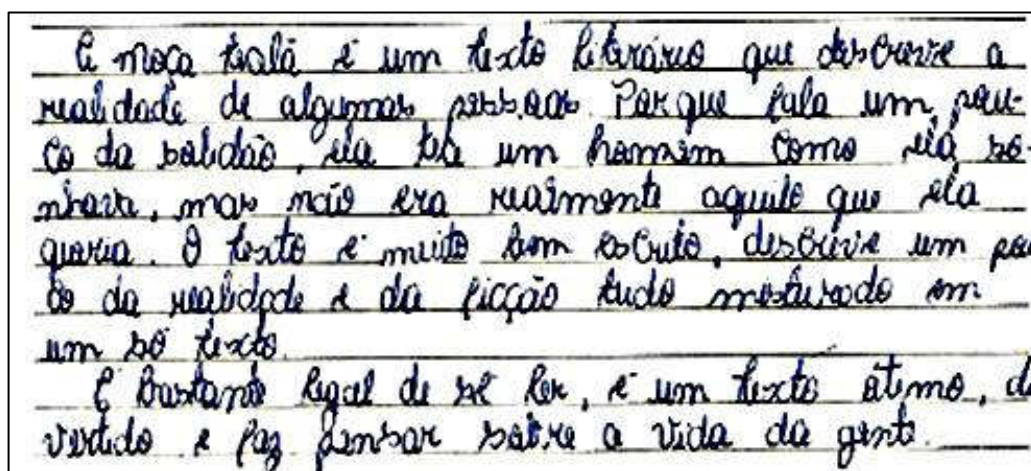 A moça tealã é um texto literário que descreve a
realidade de algumas pessoas. Por que fala um pou-
co da solidão, ela tece um homem como ela so-
nhava, mas não era realmente aquilo que ela
queria. O texto é muito bem escrito, descreve um pou
co da realidade e da ficção tudo misturado em
um só texto.
É Bastante legal de se ler, é um texto ótimo, di
vertido e faz pensar sobre a vida da gente.